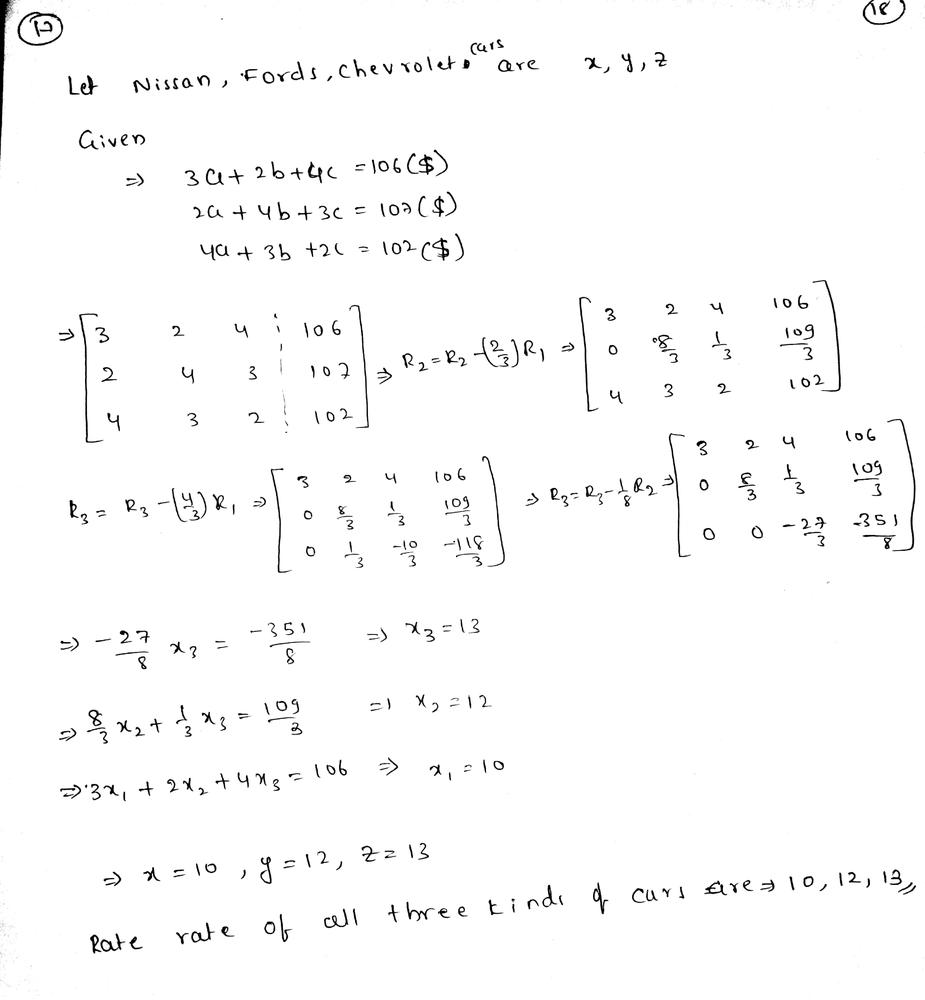 17 18
Let Nissan, Fords, Chevrolet cars are x, y, z
Given
⇒ 3a + 2b + 4c = 106 ($)
2a + 4b + 3c = 107 ($)
4a + 3b + 2c = 102 ($)
⇒ [3 2 4 ¦ 106] ⇒ R2 = R2 - (2/3) R1 ⇒ [3 2 4 106]
[2 4 3 ¦ 107] [0 8/3 1/3 109/3]
[4 3 2 ¦ 102] [4 3 2 102]
R3 = R3 - (4/3) R1 ⇒ [3 2 4 106] ⇒ R3 = R3 - 1/8 R2 ⇒ [3 2 4 106]
[0 8/3 1/3 109/3] [0 8/3 1/3 109/3]
[0 1/3 -10/3 -118/3] [0 0 -27/3 -351/8]
⇒ -27/8 x3 = -351/8 ⇒ x3 = 13
⇒ 8/3 x2 + 1/3 x3 = 109/3 ⇒ x2 = 12
⇒ 3x1 + 2x2 + 4x3 = 106 ⇒ x1 = 10
⇒ x = 10, y = 12, z = 13
Rate rate of all three kinds of cars are ⇒ 10, 12, 13